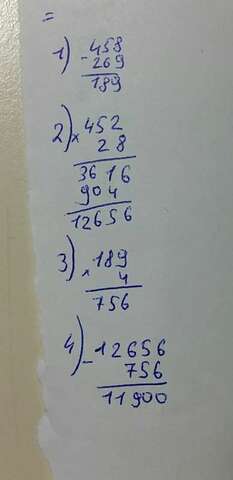 =
1) - 458
269
189
2) x 452
28
3616
904
12656
3) x 189
4
756
4) - 12656
756
11900